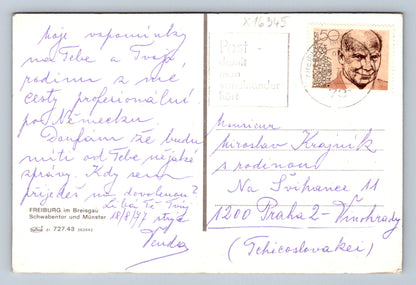 X16945
moje vzpomínky
na Tebe a Tvoji
rodinu z mé
cesty profesionální
po Německu.
Doufám že budu
míti od Tebe nějaké
zprávy. Kdy sem
přijedeš na dovolenou?
Líbá Tě Tvůj
18/8/77
Post -
50
Monsieur
Miroslav Krajník
s rodinou
Na Švihance 11
1200 Praha 2 - Vinohrady
(Tchécoslovakei)
FREIBURG im Breisgau
Schwabentor und Münster
727.43